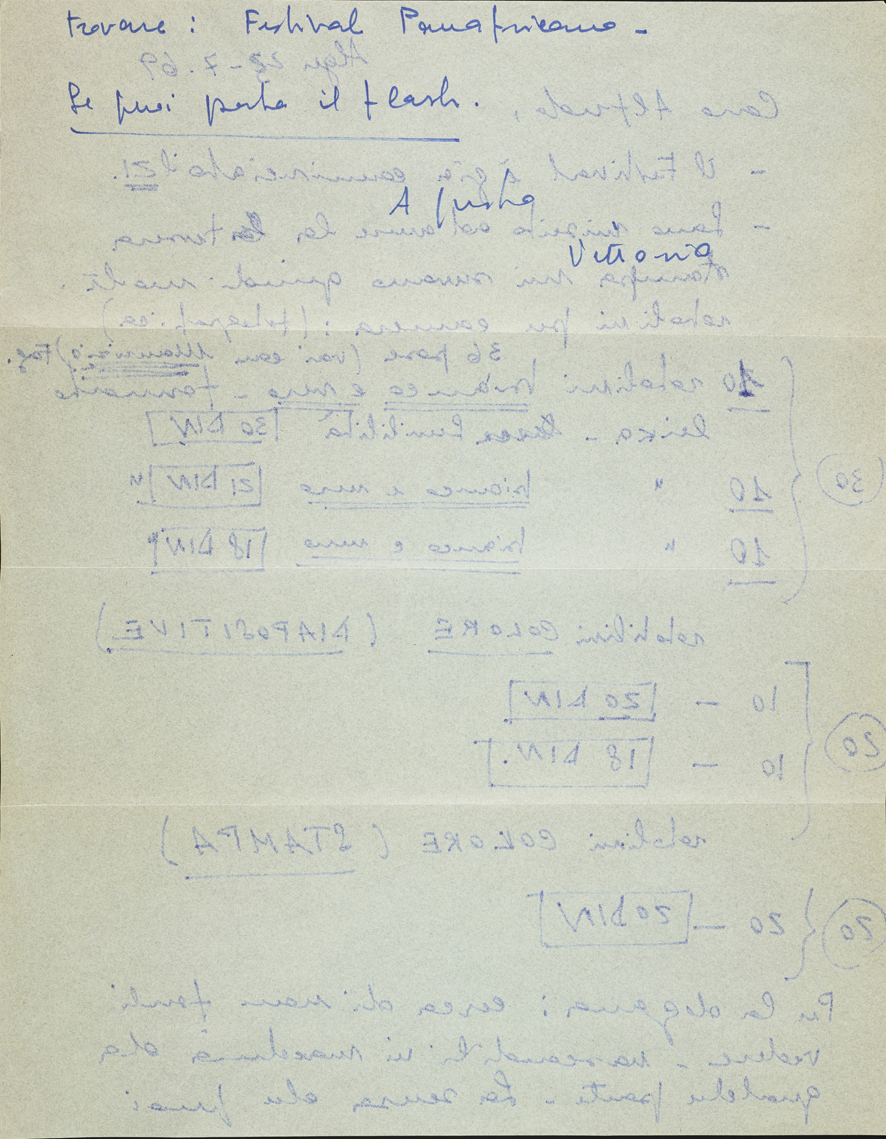 trovare : Festival Panafricano -
Se puoi porta il flash.
A presto
Vittoria
Alger 22-7.69
Caro Alfredo,
- Il Festival è già cominciato il 21.
- Sono riuscita ad avere la tessera
stampa mi servono quindi molti
rotolini per camera : (fotografica)
36 pose (vai con Maurizio) Fog.
10 rotolini bianco e nero - formato
leica - sensibilità 30 DIN
10 " bianco e nero 21 DIN "
10 " bianco e nero 18 DIN "
30
rotolini COLORE (DIAPOSITIVE)
10 - 20 DIN
10 - 18 DIN.
20
rotolini COLORE (STAMPA)
20 - 20 DIN
20
Per la dogana : cerca di non farli
vedere - nascondili in macchina da
qualche parte - La scusa che puoi